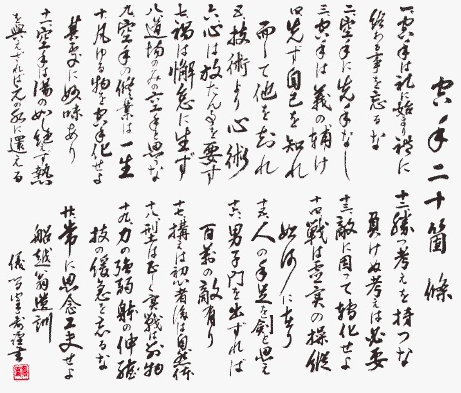 空手二十箇條
一空手は礼に始まり禮に
終わる事を忘るな
二空手に先手なし
三空手は義の輔け
四先づ自己を知れ
而して他を知れ
五技術より心術
六心は放たん事を要す
七禍は懈怠に生ず
八道場のみの空手と思ふな
九空手の修業は一生
十凡ゆる物を空手化せよ
其處に妙味あり
十一空手は湯の如し絶えず熱
を與えざれば元の水に還える
十二勝つ考えを持つな
負けぬ考えは必要
十三敵に因って轉化せよ
十四戦は虚実の操縦
如何に在り
十五人の手足を剣と思え
十六男子門を出づれば
百萬の敵有り
十七構えは初心者後は自然体
十八型は正しく実戦は別物
十九力の強弱躰の伸縮
技の緩急を忘るな
廿常に思念工夫せよ
船越翁遺訓